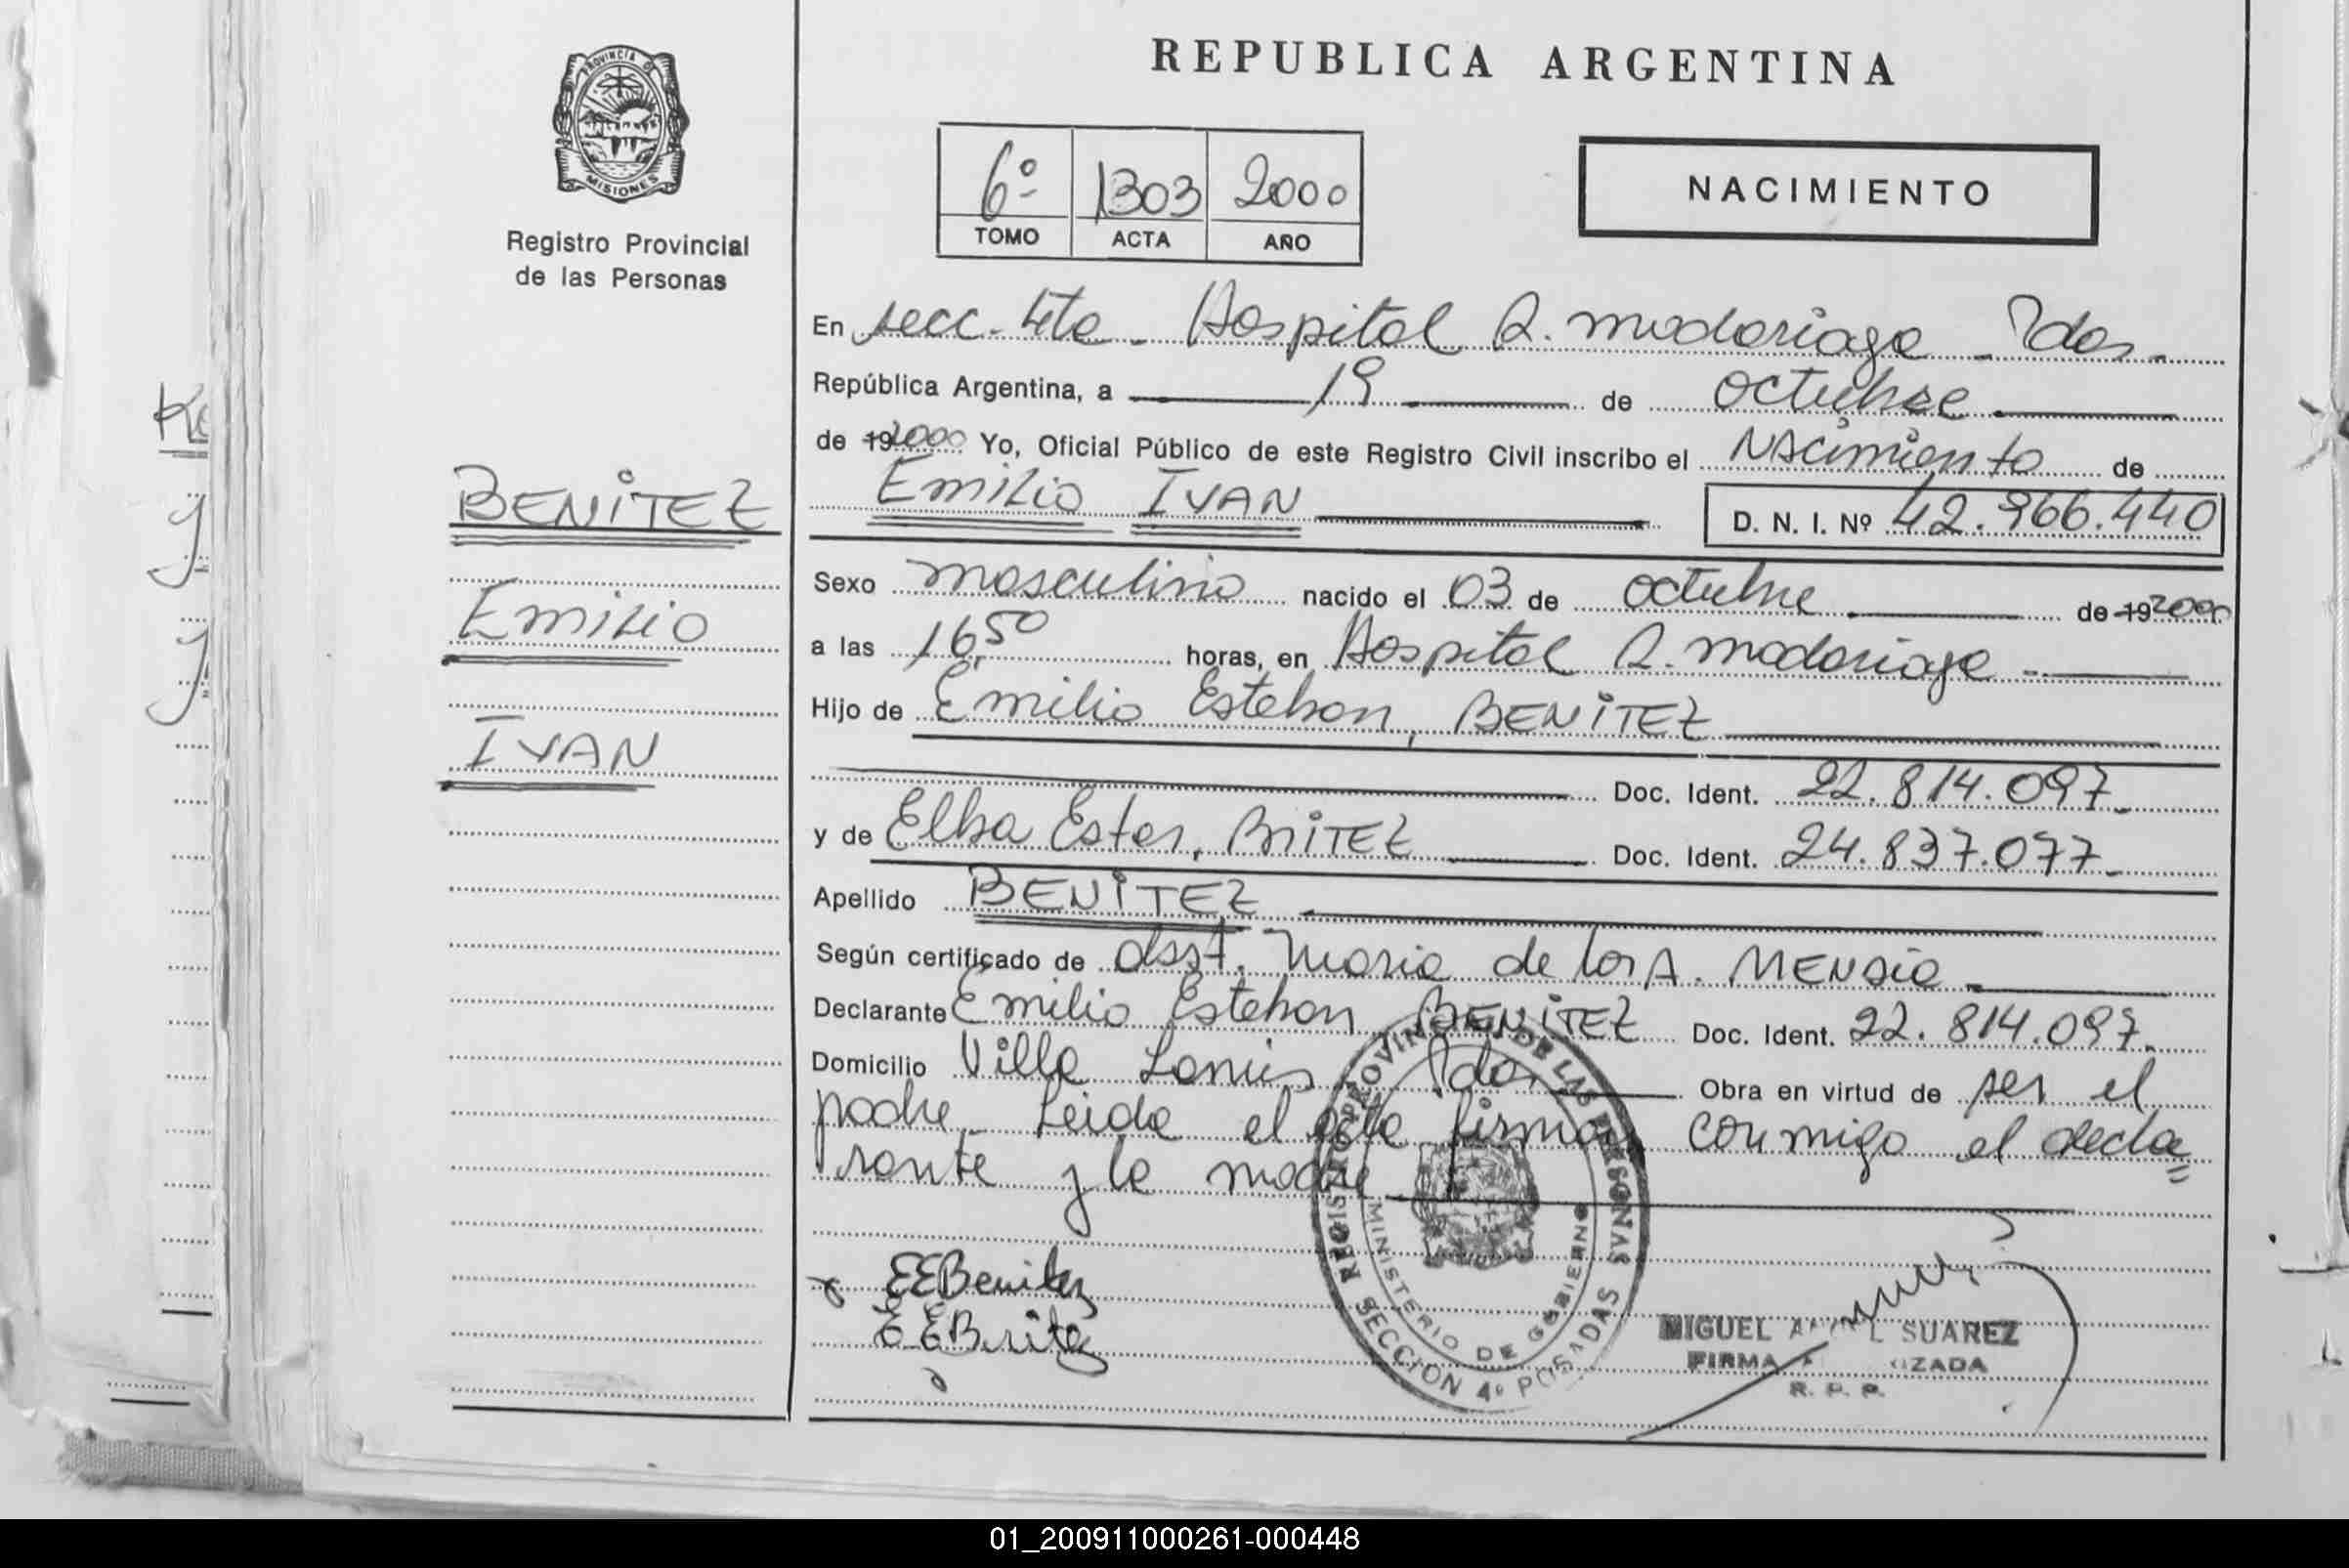 PROVINCIA D
MISIONES
Registro Provincial
de las Personas
BENITEZ
Emilio
IVAN
REPUBLICA ARGENTINA
6º 1303 2000
TOMO ACTA AÑO
NACIMIENTO
En secc. 4ta - Hospital R. madariaga - Pdas.
República Argentina, a 19 de octubre
de 192000 Yo, Oficial Público de este Registro Civil inscribo el NAcimiento de
Emilio IVAN D. N. I. Nº 42.966.440
Sexo masculino nacido el 03 de octubre de 192000
a las 16,50 horas, en Hospital R. madariaga
Hijo de Emilio Esteban, BENITEZ
Doc. Ident. 22.814.097.
y de Elba Ester, BRITEZ Doc. Ident. 24.837.077.
Apellido BENITEZ
Según certificado de obst. Maria de los A. MENDIA
Declarante Emilio Esteban BENITEZ Doc. Ident. 22.814.097.
Domicilio Villa Lanus Pdas Obra en virtud de ser el
padre. Leida el acta firman conmigo el decla=
rante y la madre
EEBenitez
EEBritez
REGISTRO PROVINCIAL DE LAS PERSONAS
MINISTERIO DE GOBIERNO
SECCION 4º POSADAS
MIGUEL SUAREZ
FIRMA
R. P. P.
01_200911000261-000448